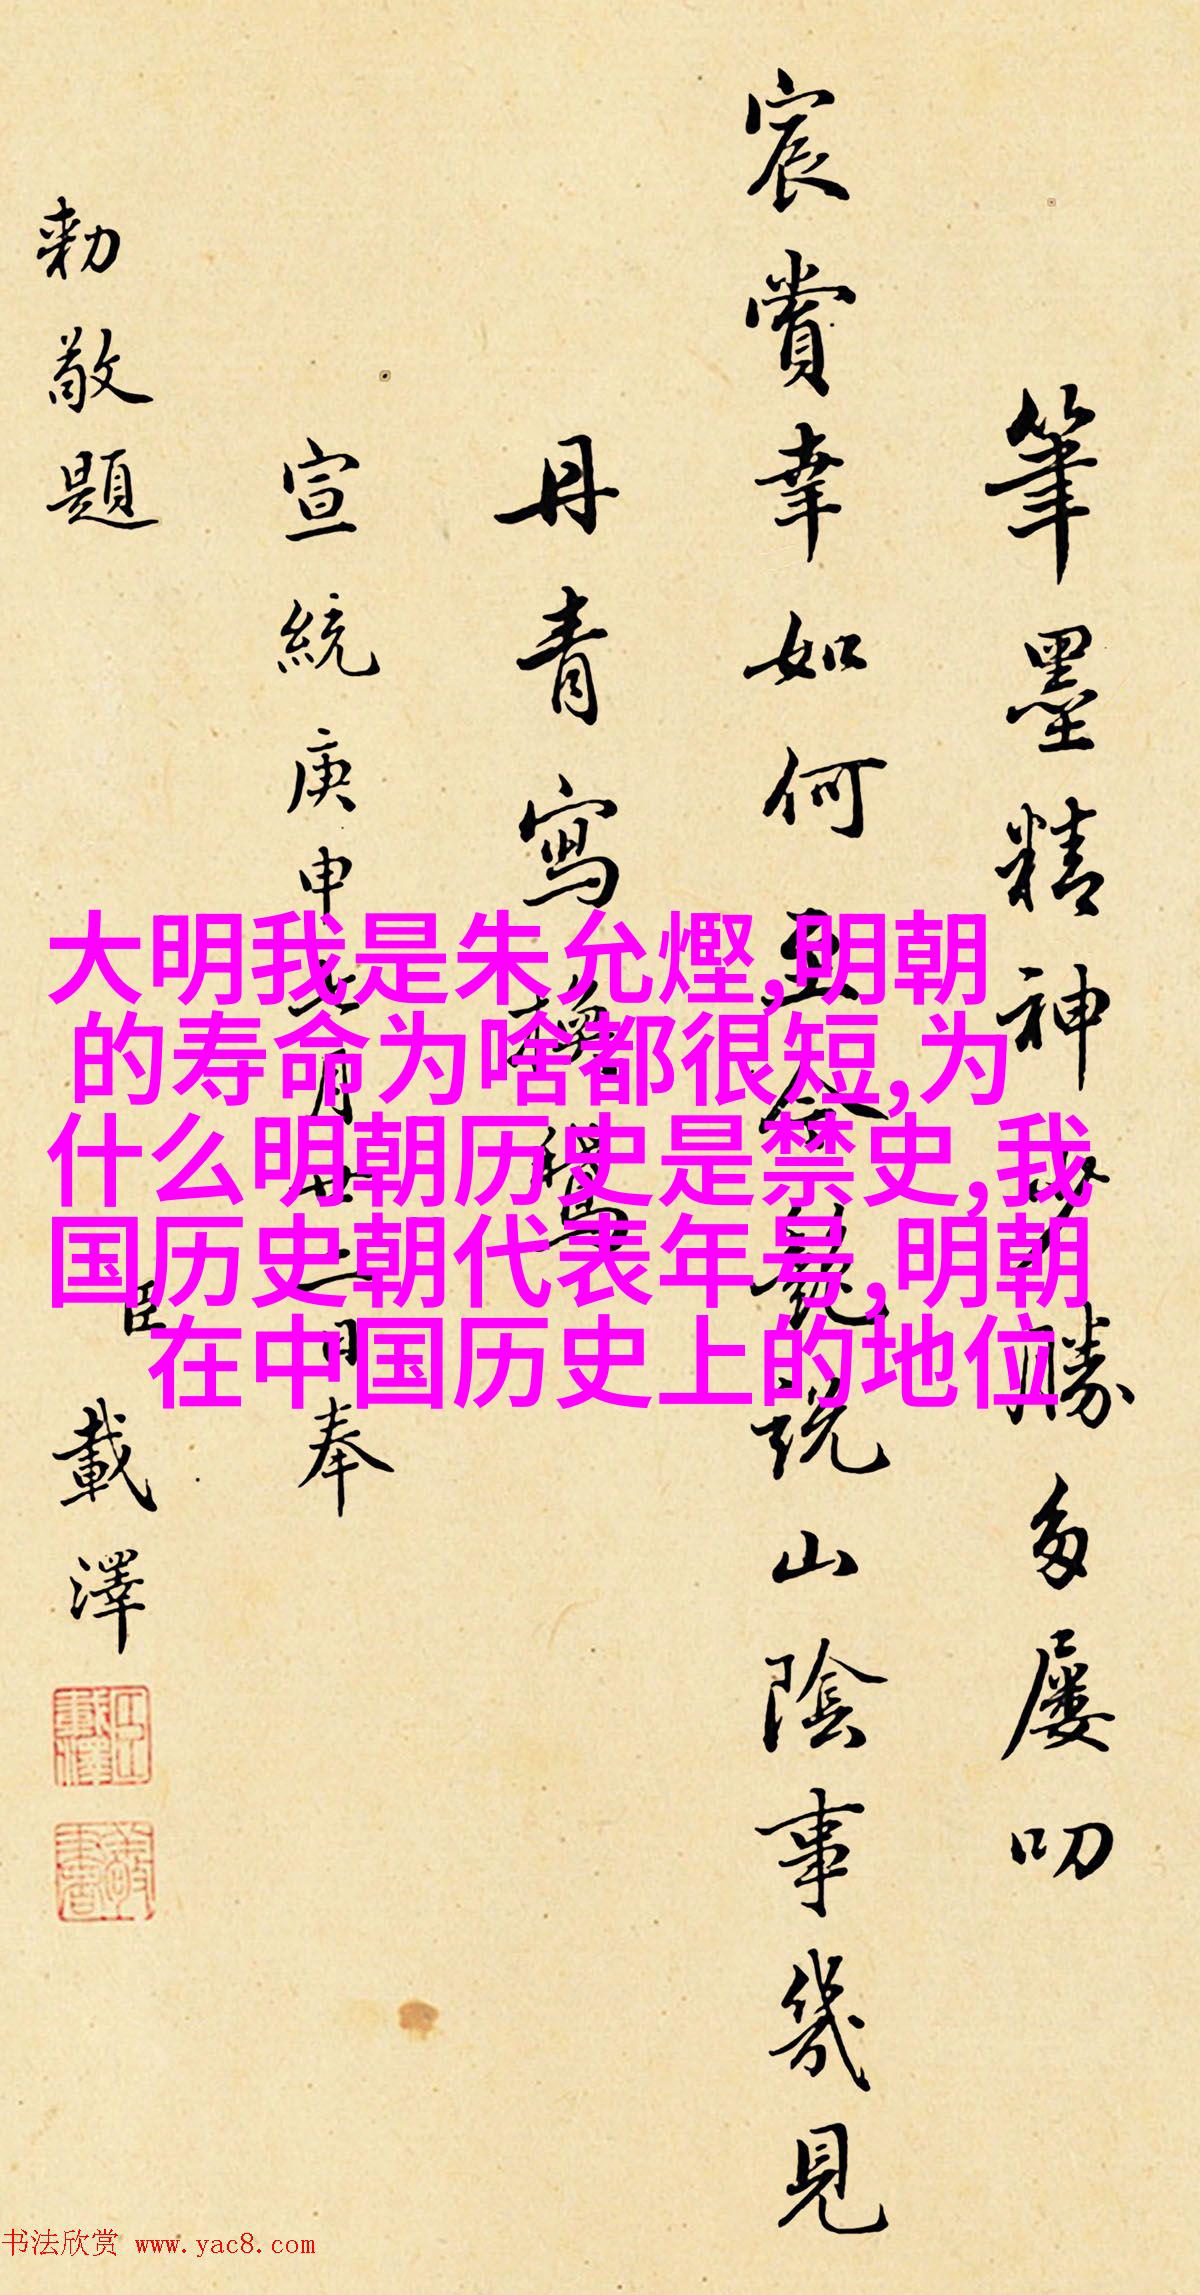 筆墨精神勝多屢叨
宸賞幸如何令競説山陰事幾見
丹青寫換鵞
宣統庚申七月廿二日奉
勑敬題 臣載澤
大明我是朱允熞,明朝
的寿命为啥都很短,为
什么明朝历史是禁史,我
国历史朝代表年号,明朝
在中国历史上的地位
书法欣赏 www.yac8.com